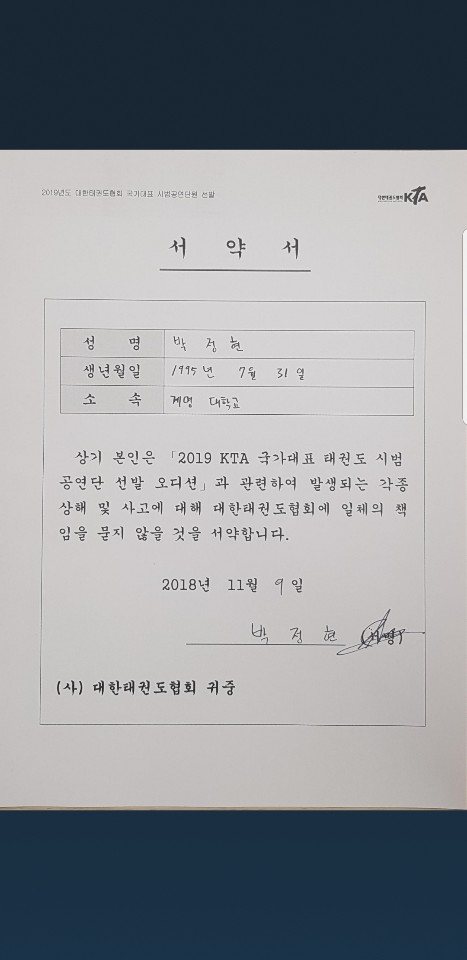 2019년도 대한태권도협회 국가대표 시범공연단원 선발
대한태권도협회 KTA
서 약 서
성 명 박 정 현
생년월일 1995년 7월 31일
소 속 계명 대학교
상기 본인은 「2019 KTA 국가대표 태권도 시범
공연단 선발 오디션」과 관련하여 발생되는 각종
상해 및 사고에 대해 대한태권도협회에 일체의 책
임을 묻지 않을 것을 서약합니다.
2018년 11월 9일
박 정 현
(사) 대한태권도협회 귀중